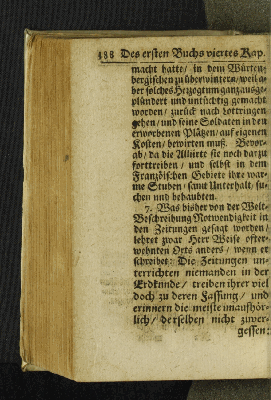 488 Des ersten Buchs viertes Kap.
macht hatte / in dem Würten-
bergischen zu überwintern / weil a-
ber solches Herzogtum ganz ausge-
plündert und untüchtig gemacht
worden / zurück nach Lottringen
gehen / und seine Soldaten in den
erworbenen Plätzen / auf eigenen
Kosten / bewirten muß. Bevor-
ab / da die Alliirte sie noch darzu
forttreiben / und selbst in dem
Französischen Gebiete ihre war-
me Stuben / samt Unterhalt / su-
chen und behaubten.
7. Was bisher von der Welt-
Beschreibung Notwendigkeit in
den Zeitungen gesagt worden /
lehret zwar Herr Weise ofter-
wehnten Orts anders / wenn er
schreibet: Die Zeitungen un-
terrichten niemanden in der
Erdkunde / treiben ihrer viel
doch zu deren Fassung / und
erinnern die meiste unaufhör-
lich / derselben nicht zuver-
gessen: